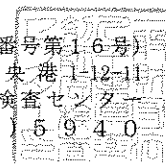 番号第16号)
央港1-12-11
検査センター
15940